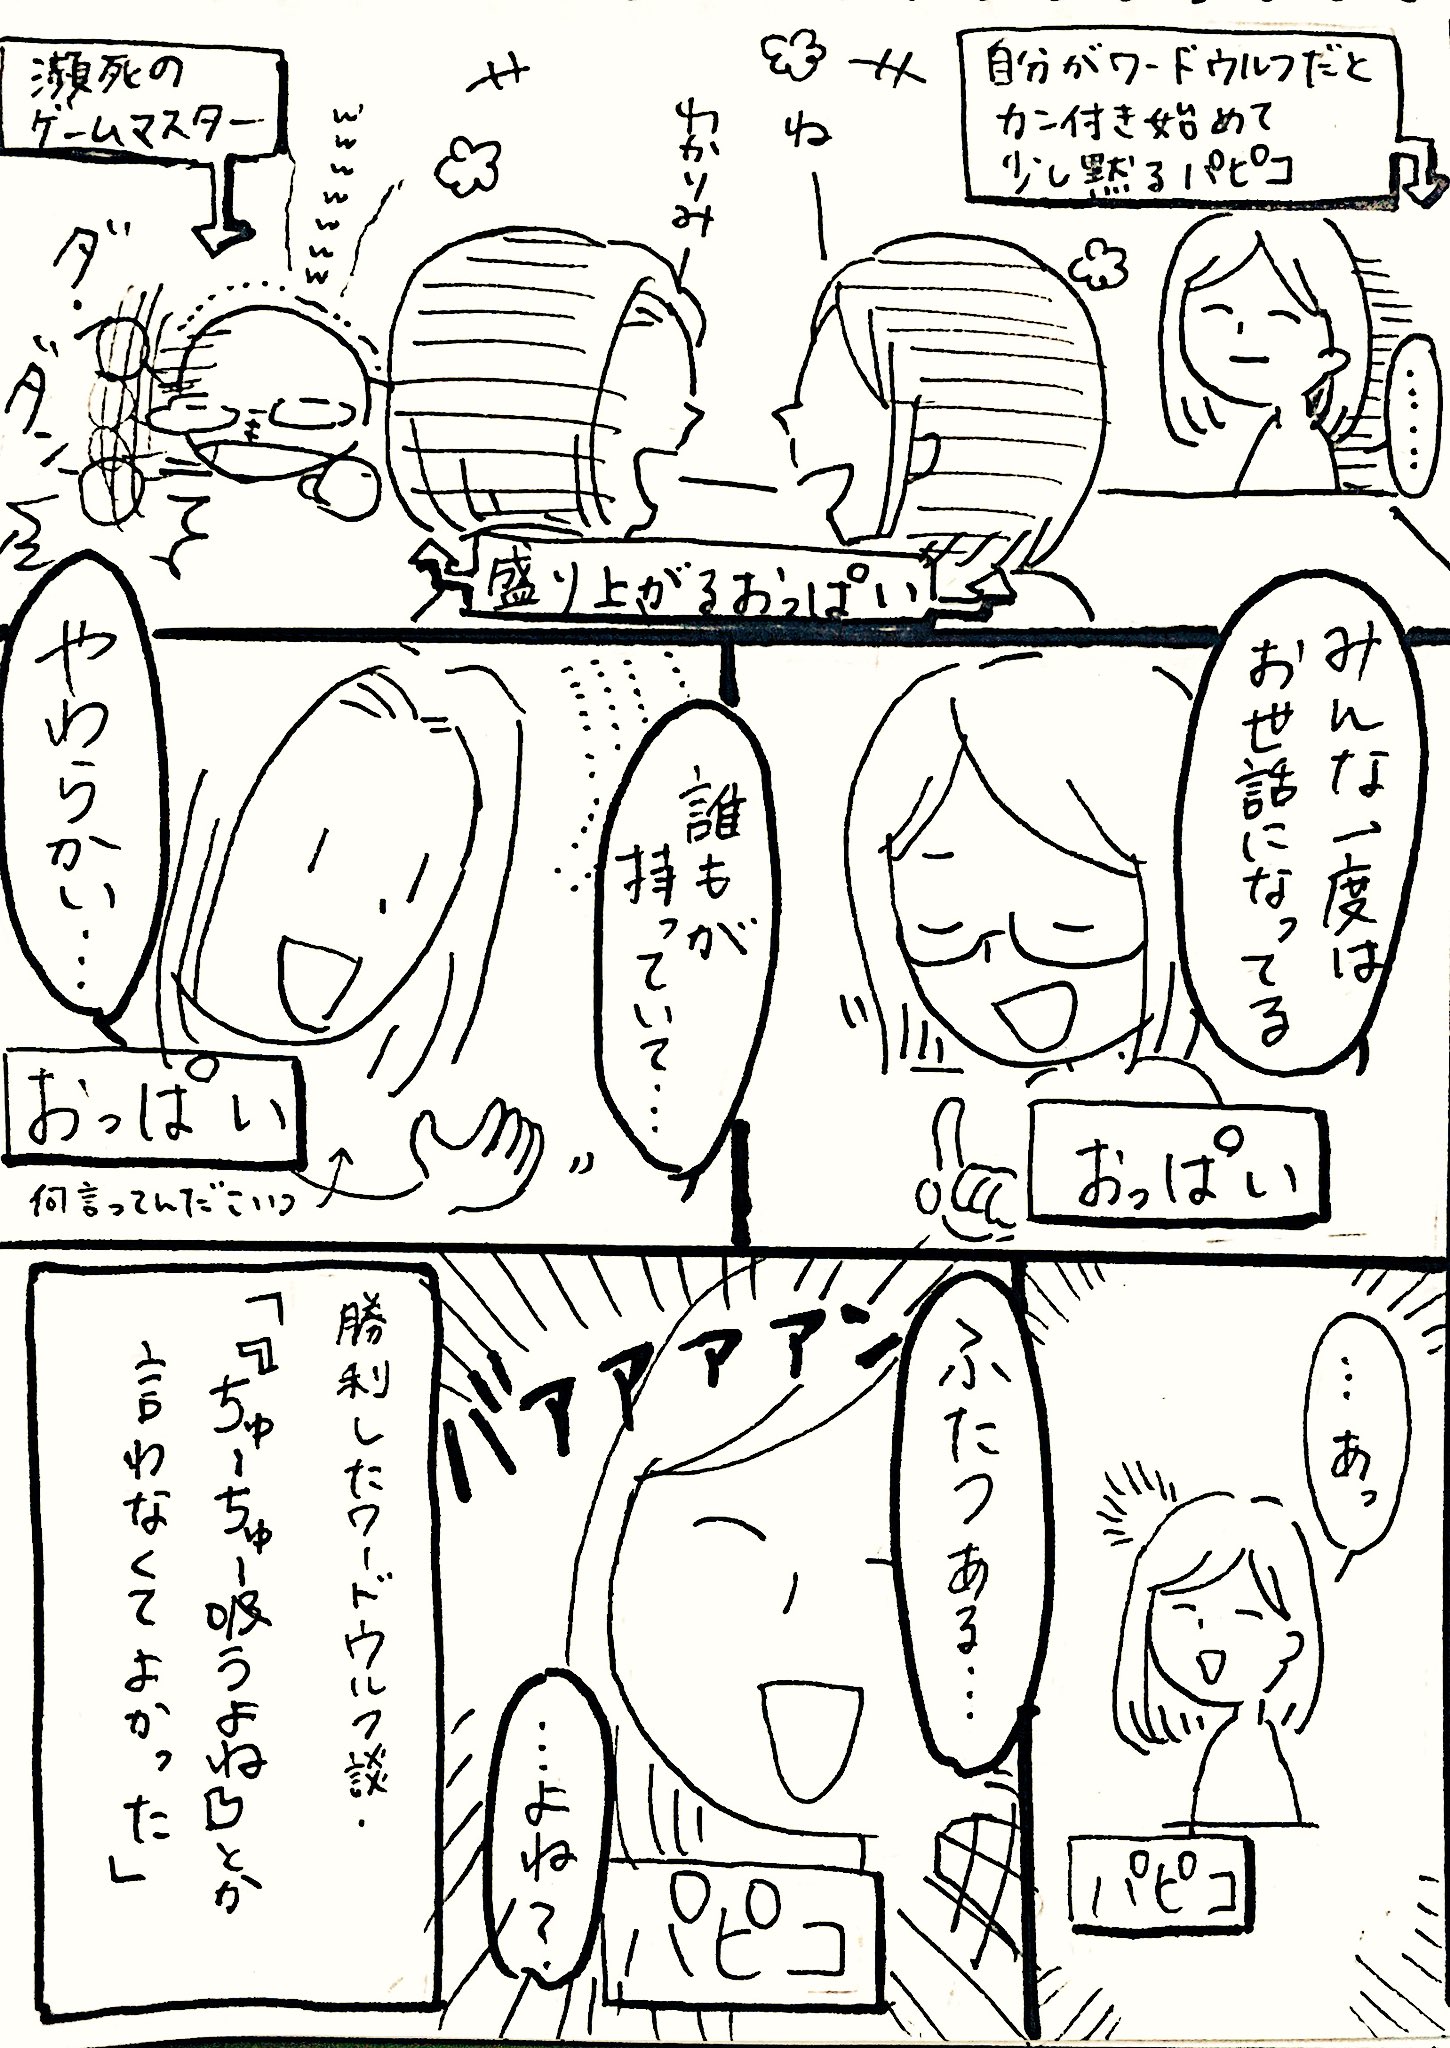 自分がワードウルフだと
カン付き始めて
少し黙るパピコ
……
ね
わかりみ
瀕死の
ゲームマスター
wwwwwww
ダンダン
盛り上がるおっぱい
みんな一度は
お世話になってる
おっぱい
誰もが
持っていて…
やわらかい…
おっぱい
何言ってんだこいつ
…あっ
パピコ
ふたつある…
バァァァァン
…よね?
パピコ
勝利したワードウルフ談.
「『ちゅーちゅー吸うよね』とか
言わなくてよかった」